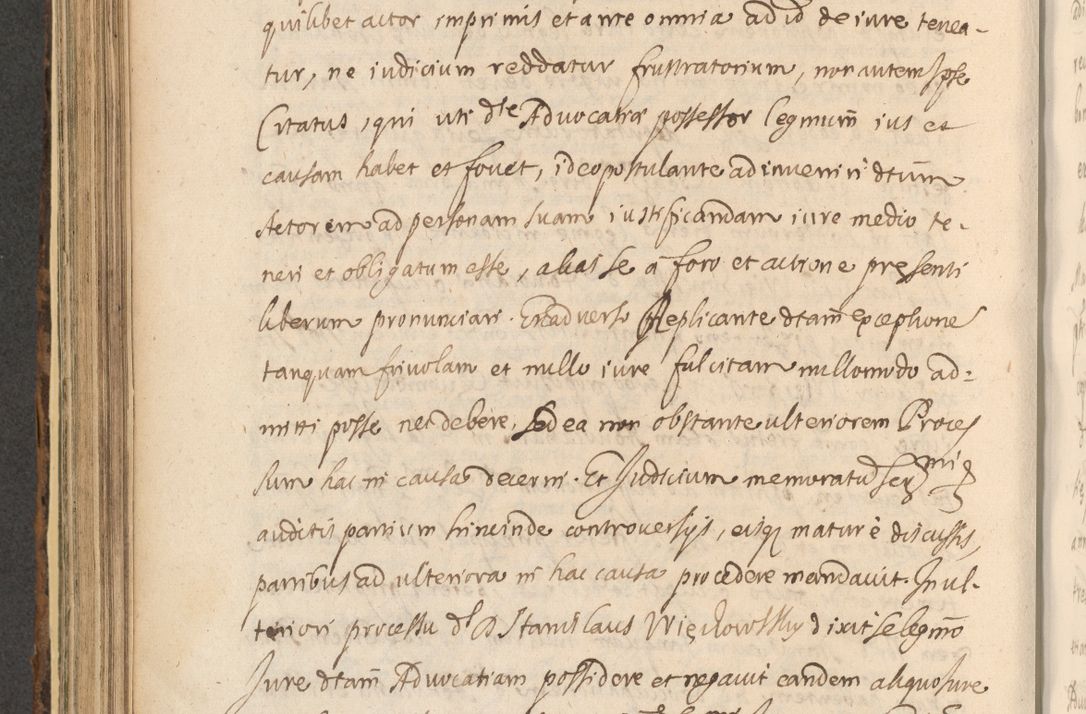 quilibet actor imprimis et ante omnia ad id de iure tenea-
tur, ne iudicium reddatur frustratorium, non autem Ipse
Citatus, qui uti dte Advocatiæ possessor legitimum ius et
causam habet et fovet, ideo postulante adinveniri dtum
Actorem ad personam suam iustificandam iure medio te-
neri et obligatum esse, alias se à foro et actione presenti
liberum pronunciari. Ex adverso Replicante dtam exceptione
tanquam frivolam et nullo iure fulcitam nullomodo ad-
mitti posse nec debere. Sed ea non obstante ulteriorem Proces
sum hac in causa decerni. Et Iudicium memoratu Ser mi
auditis partium hincinde controversijs, eisq maturè discussis,
partibus ad ulteriora in hac causa procedere mandavit. In ul-
teriori processu d D Stanislaus Więckowskij dixit se legimo
Jure dtam Advocatiam possidere et negavit eandem aliquo Jure